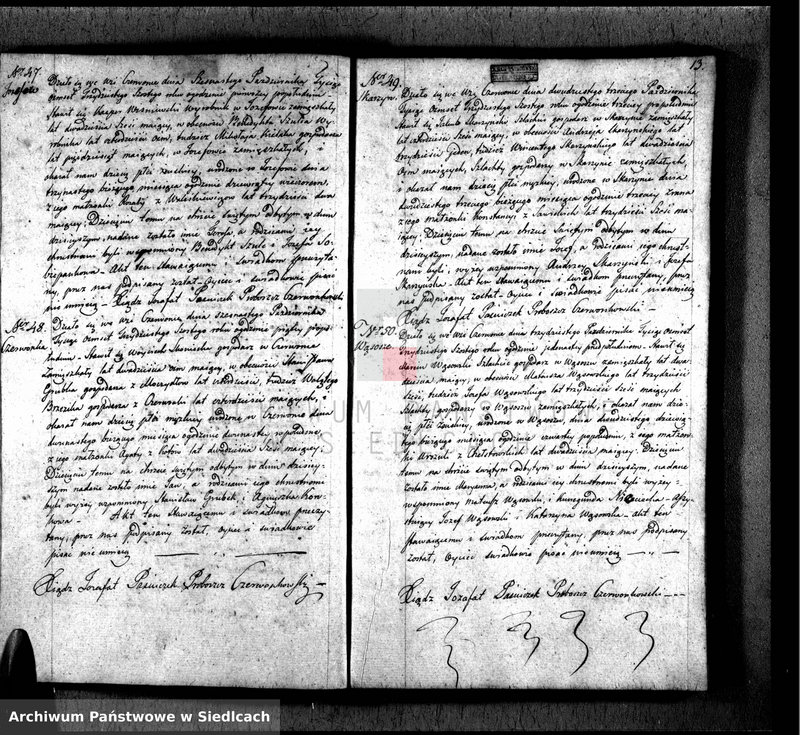 Nro 47.
Józefów
Działo się we wsi Czerwonce dnia Szesnastego Października Tysiąc
ośmset trzydziestego szóstego roku o godzinie pierwszej popołudniu
Stawił się Wyrobnik w Józefowie zamieszkały
lat dwadzieścia maiący, w obecności Benedykta Szulca Wy
robnika lat czterdzieści ośm, tudzież Gospodarza
lat pięćdziesiąt maiących, w Józefowie zamięszkałych, i
okazał nam dziecię płci żeńskiey, urodzone w Józefowie dnia
trzynastego bieżącego miesiąca o godzinie dziewiątey wieczorem
z iego małżonki lat trzydzieści dwa
maiącey; Dziecięciu temu na chrzcie świętym odbytym w dniu
dzisieyszym, nadane zostało imie Józefa, a rodzicami iey
chrzestnemi byli wyżey wspomniony Benedykt Szulc i Józefa
Akt ten Stawaiącemu i świadkom przeczyta
ny, przez nas podpisany został Oyciec i świadkowie pisać
nie umieią Xiądz Jozafat Pasiuczek Proboszcz Czerwonkowski
Nro 48.
Czerwonka
Działo się we wsi Czerwonce dnia szesnastego Października
Tysiąc ośmset Trzydziestego Szóstego roku o godzinie piątey popo
łudniu. Stawił się Woyciech gospodarz w Czerwonce
Zamięszkały lat dwadzieścia ośm maiący, w obecności Stanisława
Grubka gospodarza z lat czterdzieści, tudzież Walętego
gospodarza z Czerwonki lat czterdzieści maiących, i
okazał nam dziecię płci męzkiey urodzone w Czerwonce dnia
dwunastego bieżącego miesiąca o godzinie dwunastey w południe,
z iego małżonki Agaty z lat dwadzieścia Sześć maiącey
Dziecięciu temu na chrzcie świętym odbytym w dniu dzisiey
szym nadane zostało imie Jan, a rodzicami iego chrzestnemi
byli wyżey wspomniony Stanisław Grubek i Agnieszka
Akt ten Stawaiącemu i świadkom przeczy
tany, przez nas podpisany został, Oyciec i świadkowie
pisać nie umieią
Xiądz Jozafat Pasiuczek Proboszcz Czerwonkowski
13.
Nro 49.
Skarzyn.
Działo się we wsi Czerwonce dnia dwudziestego trzeciego Października
Tysiąc ośmset Trzydziestego Szóstego roku o godzinie trzeciey popołudniu
Stawił się Jakub Skarzyński Szlachcic gospodarz w Skarzynie zamięszkały
lat czterdzieści Sześć maiący, w obecności Andrzeja Skarzynskiego lat
trzydzieści jeden, tudzież Wincentego Skarzynskiego lat dwadzieścia
ośm maiących, Szlachty gospodarzy w Skarzynie zamięszkałych,
i okazał nam dziecię płci męzkiey, urodzone w Skarzynie dnia
dwudziestego trzeciego bieżącego miesiąca o godzinie trzeciey zrana
z iego małżonki Konstancyi z lat trzydzieści Sześć ma
iącey; Dziecięciu temu na chrzcie Świętym odbytym w dniu
dzisieyszym, nadane zostało imie Józef, a rodzicami iego chrzest
nemi byli, wyżey wspomniony Andrzey Skarzyński i Józefa
Skarzynska. Akt ten Stawaiącemu i świadkom przeczytany, przez
nas podpisany został Oyciec i świadkowie pisać nieumieią
Xiądz Jozafat Pasiuczek Proboszcz Czerwonkowski
Nro 50.
Wąsosze.
Działo się we wsi Czerwonce dnia trzydziestego Października Tysiąc ośmset
Trzydziestego Szóstego roku o godzinie jedenastey przedpołudniem. Stawił się
Wąsowski Szlachcic gospodarz w Wąsoszu zamięszkały lat dwa
dzieścia maiący, w obecności Mateusza Wąsowskiego lat trzydzieści
Sześć, tudzież Józefa Wąsowskiego lat trzydzieści Sześć maiących
Szlachty gospodarzy w Wąsoszu zamięszkałych, i okazał nam dzie
cię płci żeńskiey, urodzone w Wąsoszu, dnia dwudziestego dziewią
tego bieżącego miesiąca o godzinie czwartey popołudniu, z iego małżon
ki Urszuli z Chełstowskich lat dwadzieścia maiącey. Dziecięciu
temu na chrzcie świętym odbytym w dniu dzisieyszym, nadane
zostało imie Maryanna, a rodzicami iey chrzestnemi byli wyżey
wspomniony Mateusz Wąsowski i Kunegunda Assy
stuiący Józef Wąsowski i Katarzyna Wąsowska Akt ten
stawaiącemu i świadkom przeczytany, przez nas podpisany
został, Oyciec świadkowie pisać nieumieią
Xiądz Jozafat Pasiuczek Proboszcz Czerwonkowski
Archiwum Państwowe w Siedlcach